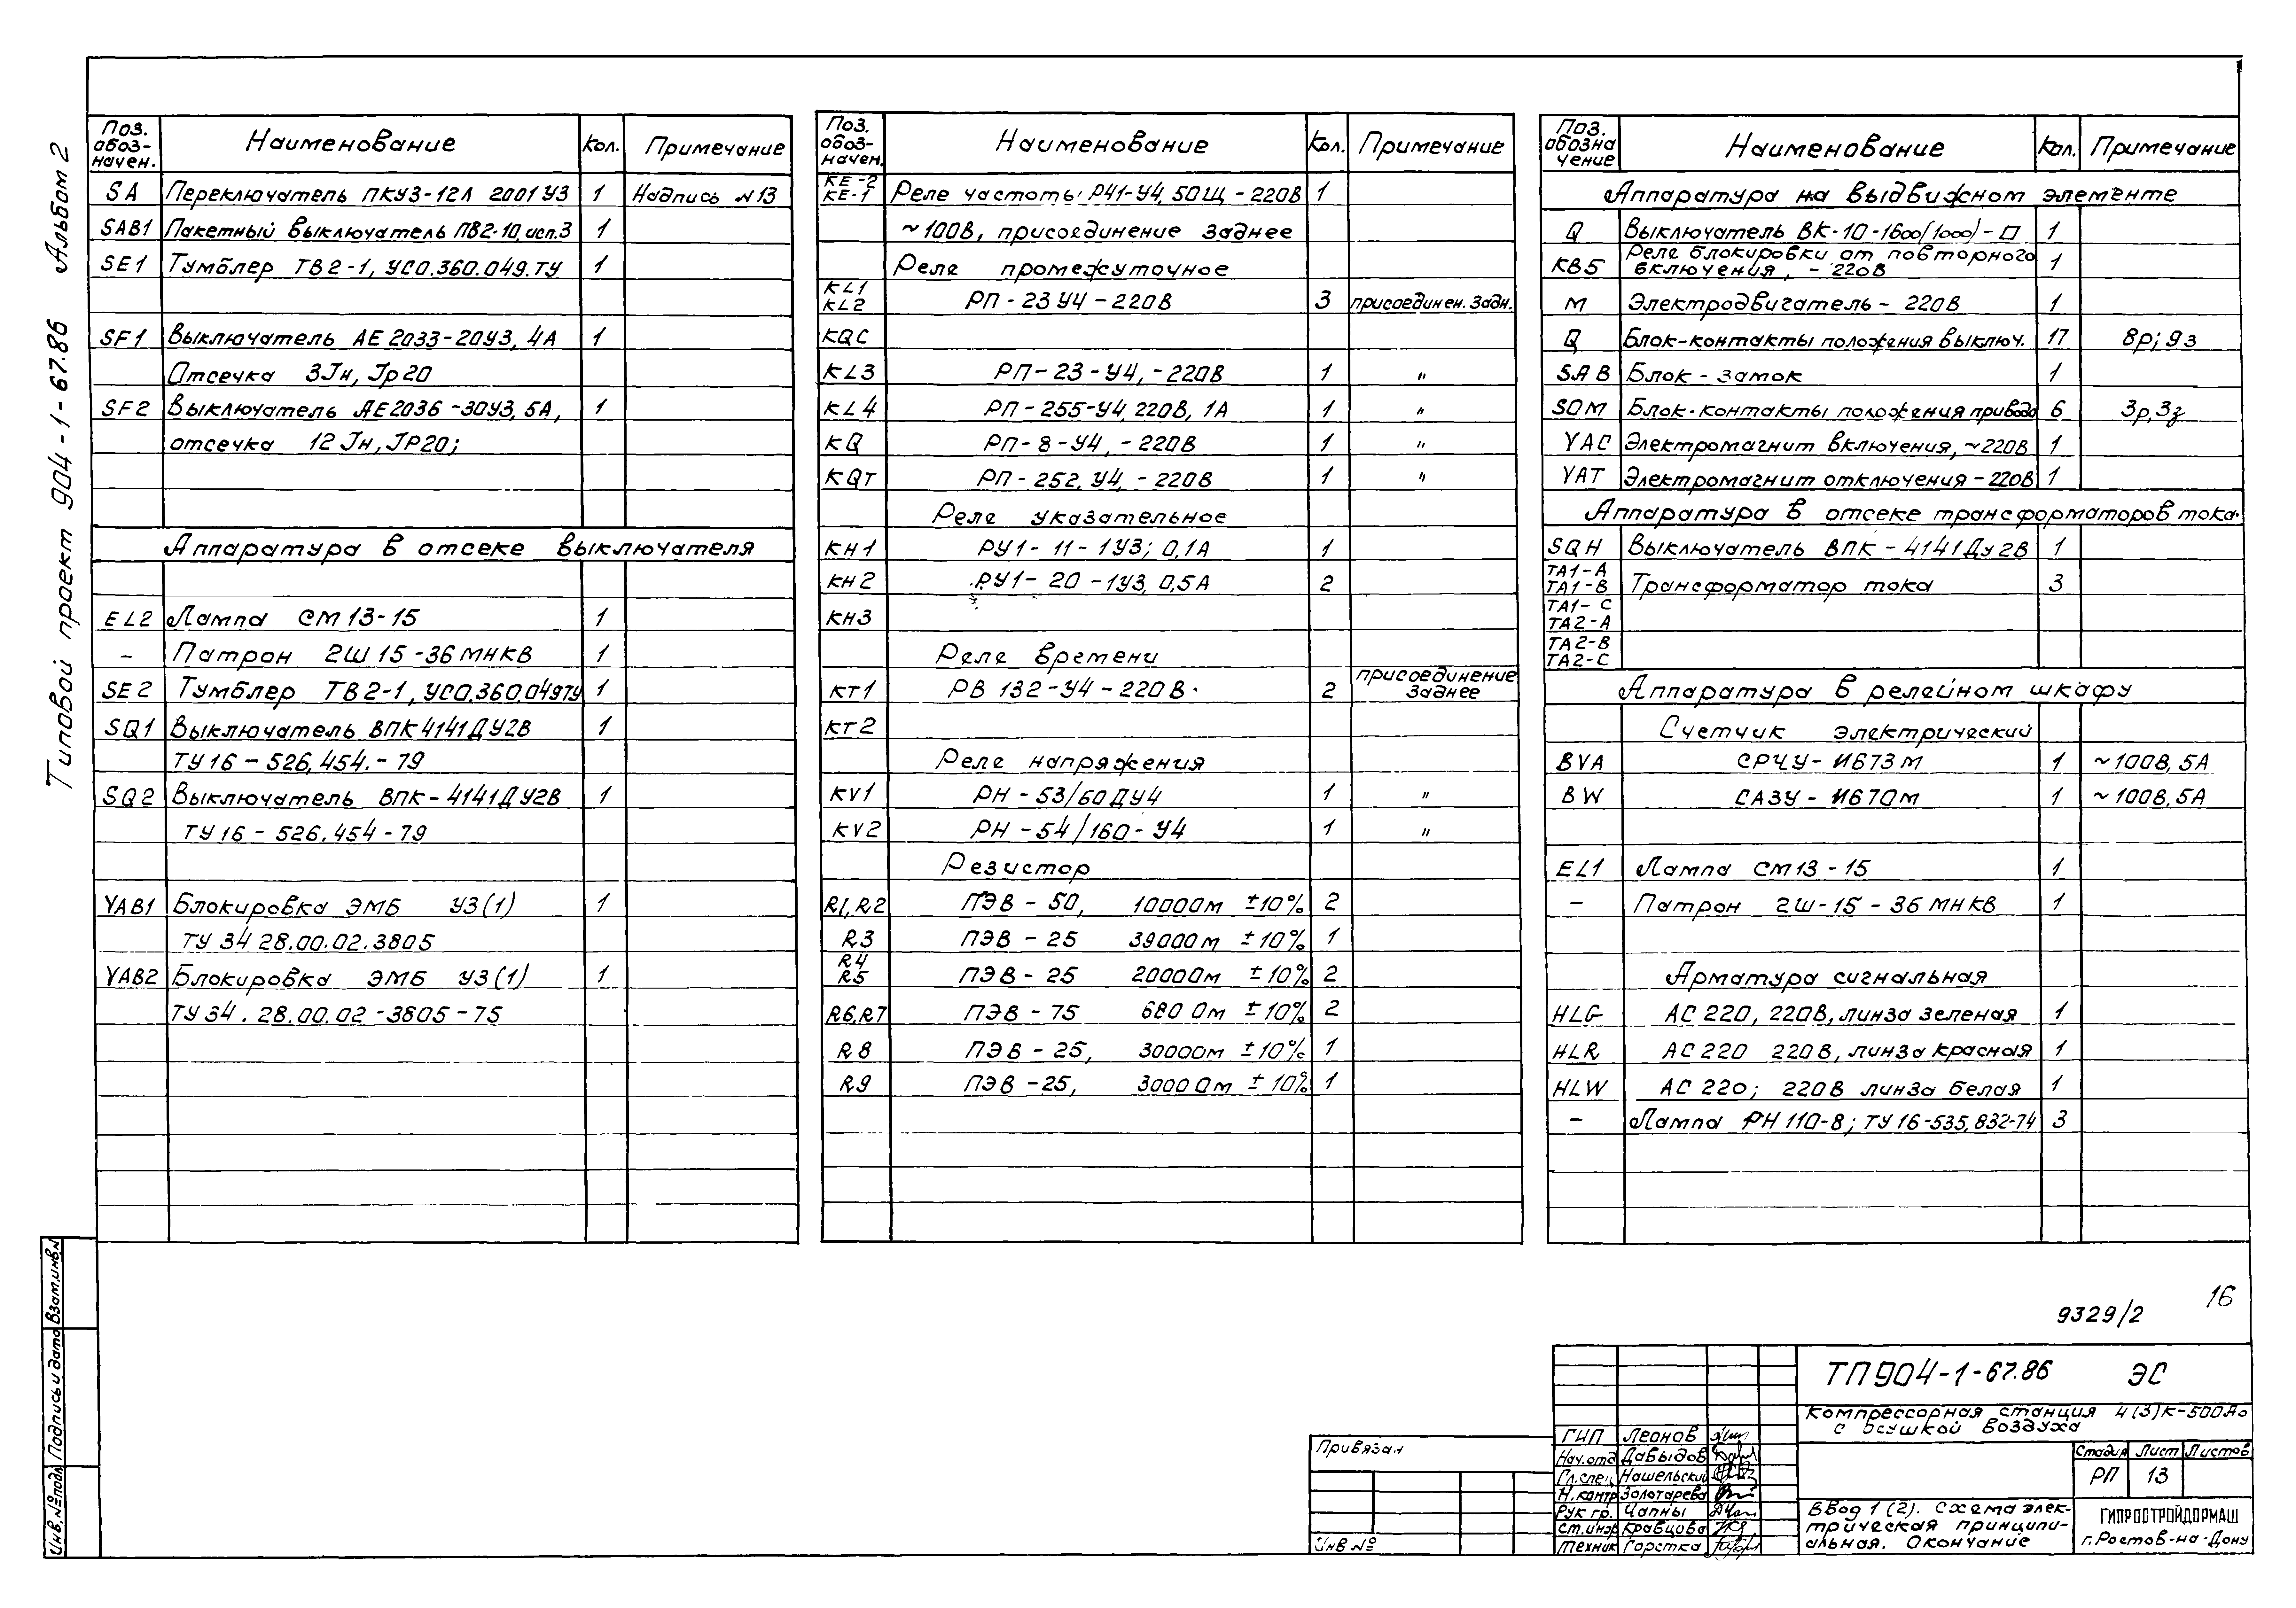 Типовой проект 904-1-67.86 Альбом 2
Поз. обозначен. Наименование Кол. Примечание
SA Переключатель ПКУ3-12Л 2001 У3 1 Надпись №13
SAB1 Пакетный выключатель ПВ2-10, исп.3 1
SE1 Тумблер ТВ2-1, УСО.360.049.ТУ 1
SF1 Выключатель АЕ 2033-20У3, 4А 1
Отсечка 3Iн, Iр20
SF2 Выключатель АЕ2036-30У3, 5А, 1
отсечка 12 Iн, IР20;
Аппаратура в отсеке выключателя
EL2 Лампа СМ 13-15 1
- Патрон 2Ш 15-36 МНКВ 1
SE2 Тумблер ТВ2-1, УСО.360.049ТУ 1
SQ1 Выключатель ВПК 4141ДУ2В 1
ТУ16-526.454.-79
SQ2 Выключатель ВПК-4141ДУ2В 1
ТУ16-526.454-79
YAB1 Блокировка ЭМБ У3(1) 1
ТУ 34 28.00.02.3805
YAB2 Блокировка ЭМБ У3(1) 1
ТУ 34.28.00.02-3805-75
Поз. обозначен. Наименование Кол. Примечание
KE-2
KE-1 Реле частоты РЧ1-У4, 50Щ-220В 1
~100В, присоединение заднее
Реле промежуточное
KL1
KL2 РП-23 У4-220В 3 присоединен. задн.
KQC
KL3 РП-23-У4,-220В 1 "
KL4 РП-255-У4, 220В, 1А 1 "
KQ РП-8-У4,-220В 1 "
KQT РП-252, У4,-220В 1 "
Реле указательное
KH1 РУ1-11-1У3; 0,1А 1
KH2 РУ1-20-1У3, 0,5А 2
KH3
Реле времени
KT1 РВ 132-У4-220В. 2 присоединение заднее
KT2
Реле напряжения
KV1 РН-53/60ДУ4 1 "
KV2 РН-54/160-У4 1 "
Резистор
R1, R2 ПЭВ-50, 1000Ом ±10% 2
R3 ПЭВ-25 3900Ом ±10% 1
R4
R5 ПЭВ-25 2000Ом ±10% 2
R6, R7 ПЭВ-75 680 Ом ±10% 2
R8 ПЭВ-25, 3000Ом ±10% 1
R9 ПЭВ-25, 3000 Ом ±10% 1
Поз. обозначение Наименование Кол. Примечание
Аппаратура на выдвижном элементе
Q Выключатель ВК-10-1600(1000)-□ 1
KBS Реле блокировки от повторного включения, -220В 1
M Электродвигатель-220В 1
Q Блок-контакты положения выключ. 17 8р; 9з
SAB Блок-замок 1
SQM Блок-контакты положения привода 6 3р, 3з
YAC Электромагнит включения, ~220В 1
YAT Электромагнит отключения-220В 1
Аппаратура в отсеке трансформаторов тока.
SQH Выключатель ВПК-4141Ду2В 1
TA1-A
TA1-B Трансформатор тока 3
TA1-C
TA2-A
TA2-B
TA2-C
Аппаратура в релейном шкафу
Счетчик электрический
BVA СРЧУ-И673М 1 ~100В, 5А
BW САЗУ-И670М 1 ~100В, 5А
EL1 Лампа СМ13-15 1
- Патрон 2Ш-15-36 МНКВ 1
Арматура сигнальная
HLG АС 220, 220В, линза зеленая 1
HLR АС 220 220В, линза красная 1
HLW АС 220; 220В линза белая 1
- Лампа РН 110-8; ТУ 16-535.832-74 3
16
9329/2
ТП904-1-67.86 ЭС
Компрессорная станция 4(3)К-500А
с осушкой воздуха
Стадия Лист Листов
РП 13
Ввод 1(2). Схема элек-
трическая принципи-
альная. Окончание
ГИПРОСТРОЙДОРМАШ
г.Ростов-на-Дону
ГИП Леонов
Нач.отд Давыдов
Гл.спец. Нашельский
Н.контр Золотарева
Рук гр. Чапны
Ст.инж Кравцова
Техник Горстка
Привязан
Инв №
Взам.инв.№
Подпись и дата
Инв.№подл